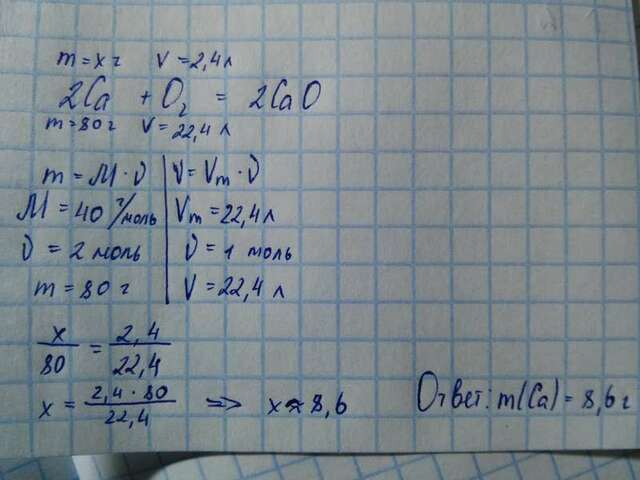 m = x г V = 2,4 л
2Ca + O₂ = 2CaO
m = 80 г V = 22,4 л
m = M · ν | V = Vm · ν
M = 40 г/моль | Vm = 22,4 л
ν = 2 моль | ν = 1 моль
m = 80 г | V = 22,4 л
x/80 = 2,4/22,4
x = 2,4 · 80/22,4 => x ≈ 8,6
Ответ: m(Ca) = 8,6 г